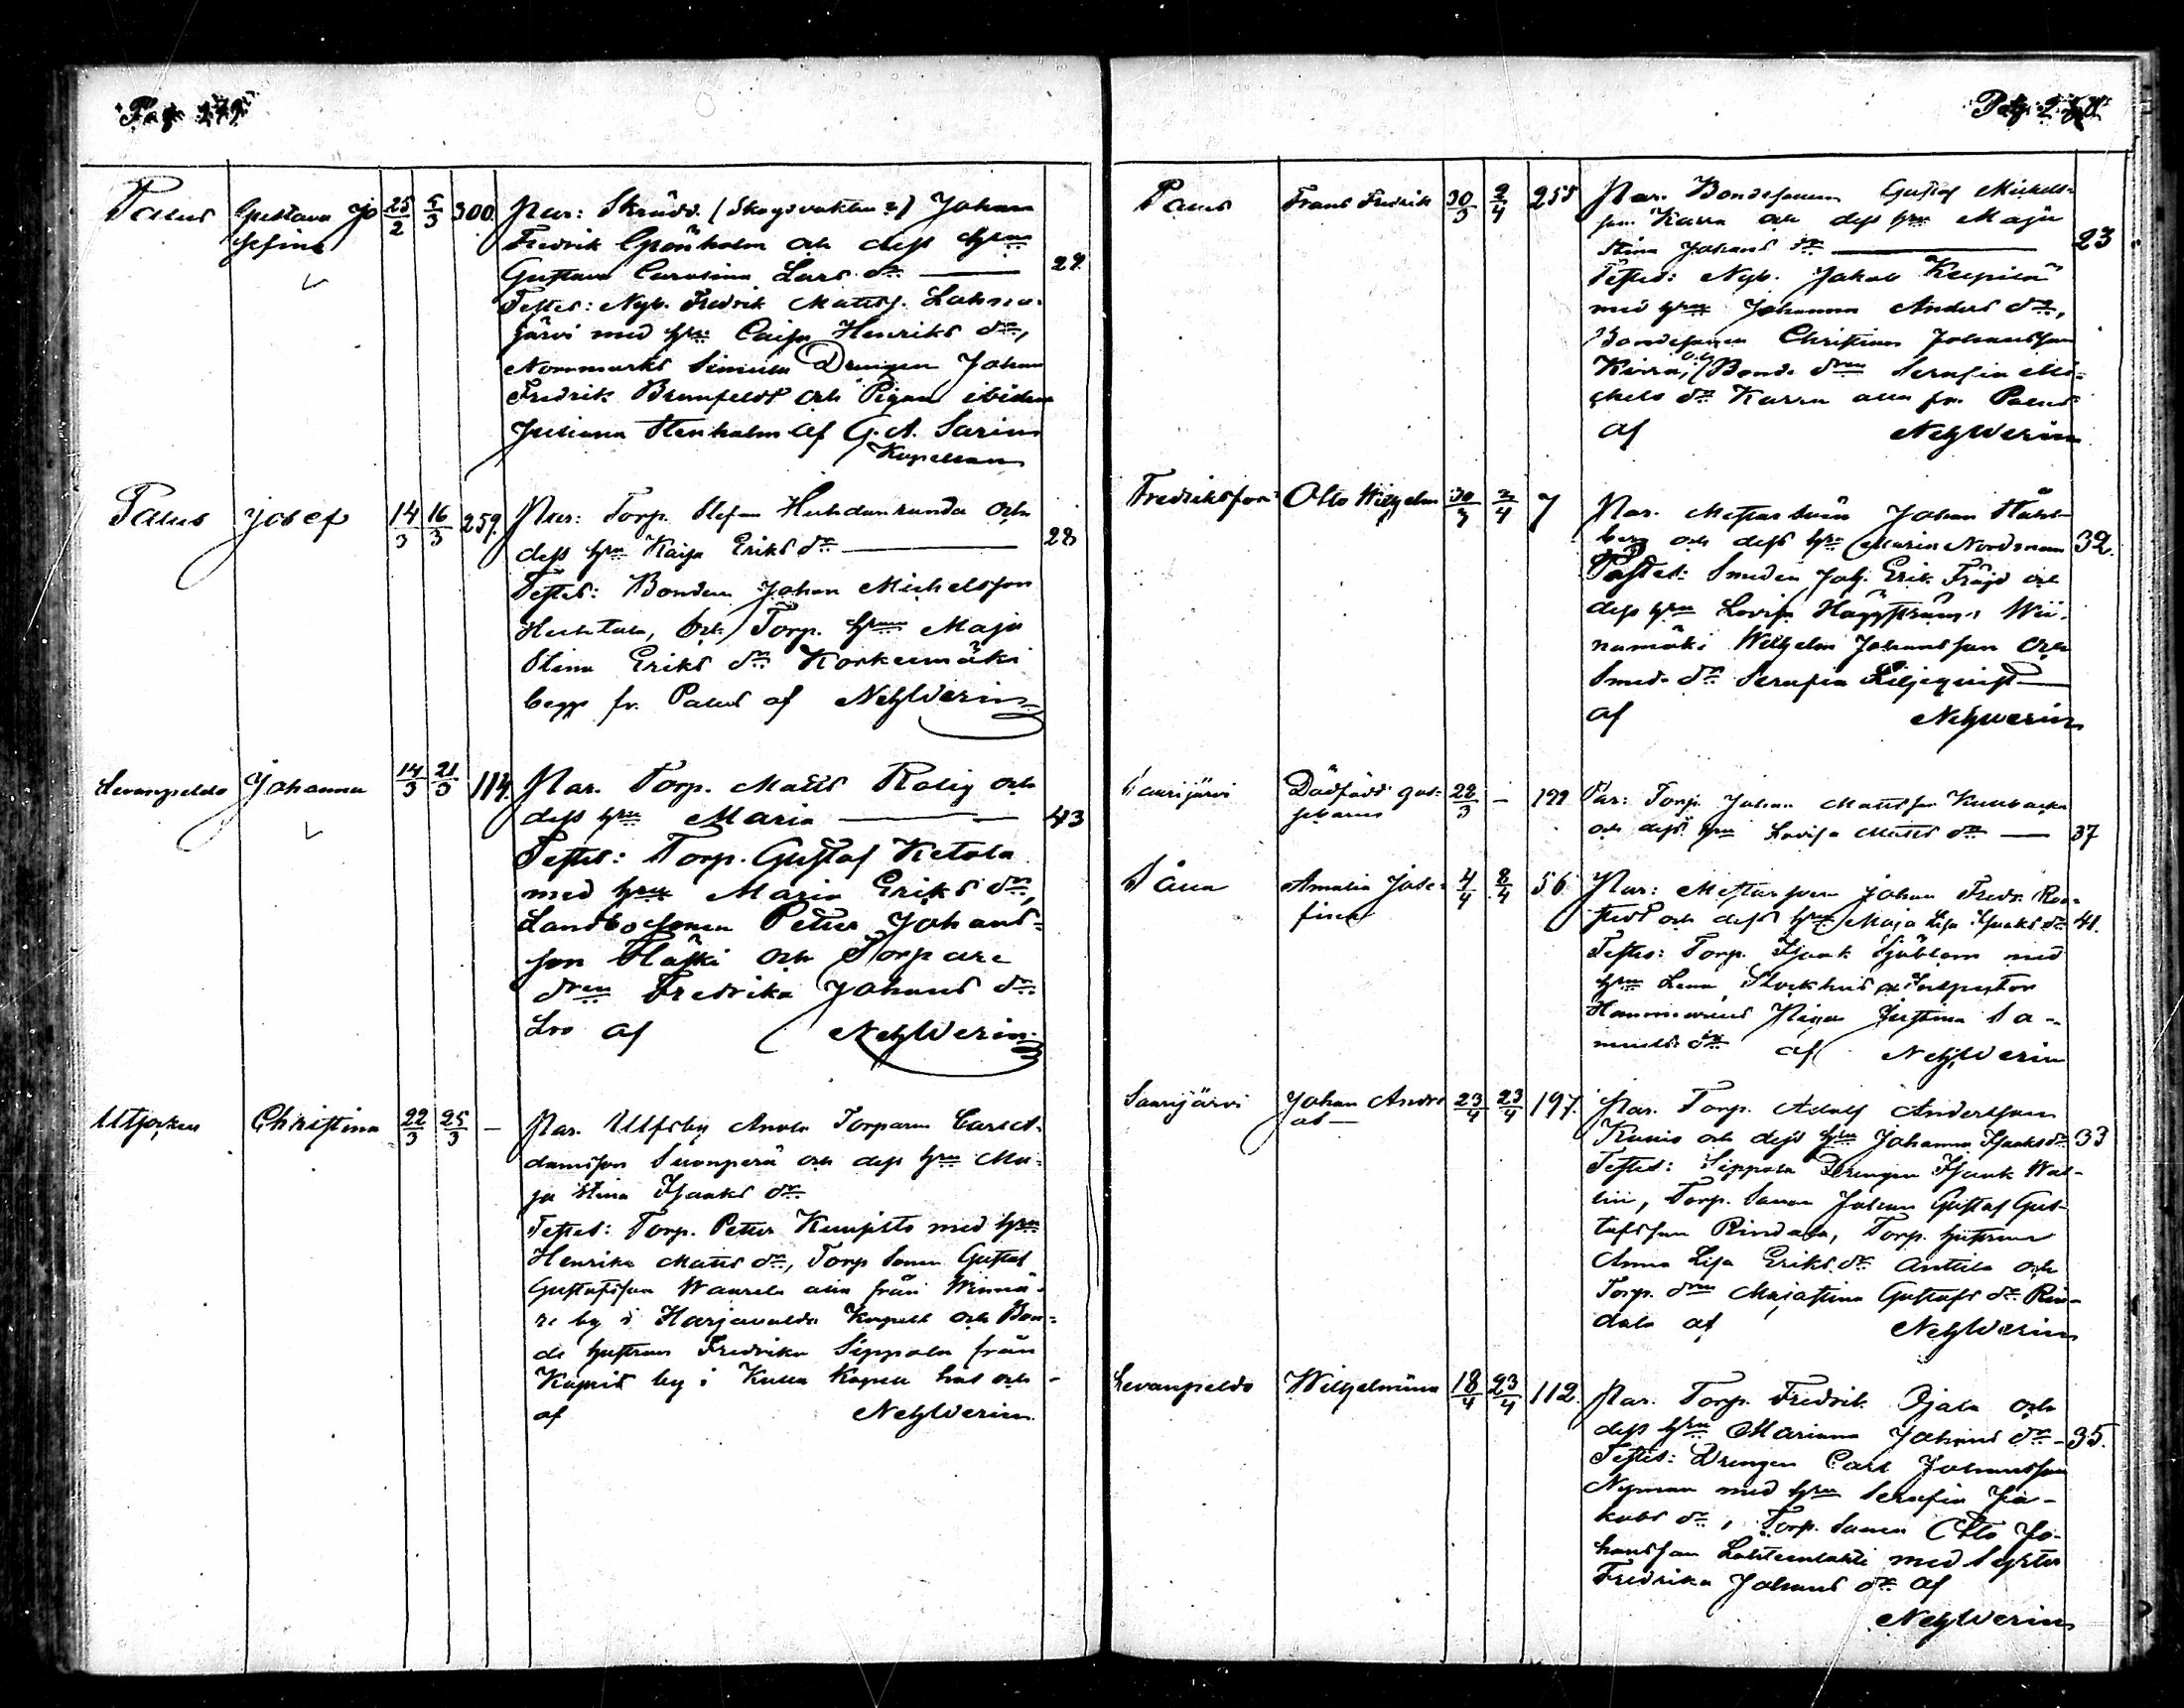 Pag 279
Palus Gustava Jo 25/2 5/3 300. Par: Skrädd. (Skogsvakten?) Johan
sefina Fredrik Grönholm och dess hru
Gustava Carolina Lars dr 29.
Testes: Nyb. Fredrik Matts
järvi med hru Caisa Henriks dr,
Norrmarks Simula Drengen Johan
Fredrik Brunfeldt och Pigan ibidem
Juliana Stenholm af G. A.
Kapellan
Palus Josef 14/3 16/3 259. Par: Torp. Stefan Huhdanranda och
dess hru Kaisa Eriks dr 28
Testes: Bonden Johan Michelsson
Huhtala, och Torp. hrun Maja
Stina Eriks dr Korkeemäki
begge fr. Palus af Neh Werin
Levanpeldo Johanna 14/3 21/3 114. Par. Torp. Matts Rolig och
dess hru Maria 43
Testes: Torp. Gustaf Ketola
med hru Maria Eriks dr,
Landbosonen Petter Johans-
son Häski och Torpare
dren Fredrika Johans dr
af Neh Werin
Utsocken Christina 22/3 25/3 – Par. Ulfsby Anola Torparen Carl
damsson Suonperä och dess hru Ma-
ja Stina Isaaks dr
Testes: Torp. Petter Kempito med hru
Henrika Matts dr, Torp Sonen Gustaf
Gustafsson Waurela alla från Winnä-
re by i Harjavalda Kapell och Bon-
de hustrun Fredrika Seppola från
by i Kulla Kapell hos och
af Neh Werin.
Pag. 280
Palus Frans Fredrik 30/3 2/4 255 Par. Bondesonen Gustaf Michels-
son Karra och dess hru Maja
Stina Johans dr 23
Testes: Nyb. Jakob Keipilä
med hru Johanna Anders dr,
Bondesonen Christian Johansson
Kivra, och Bonde dren Serafia Mi-
chels dr Karra alla fr. Palus
af Neh Werin
Fredriksfors Otto Wilhelm 30/3 2/4 7 Par. Mästersven Johan Ståhl-
berg och dess hru Maria Nordman 32.
Testes: Smeden Joh. Erik Fröjd och
dess hru Lovisa Häggström, Wii-
namäki Wilhelm Johansson och
Smeds dr Serafia Liljeqvist
af Neh Werin
Laurijärvi Dödfödt gos- 28/3 – 199 Par: Torp. Johan Mattsson
sebarn och dess hru Lovisa Matts dr 37
Påua Amalia Jose- 4/4 8/4 56 Par: Mästersven Johan Fredr. Ro-
fina stedt och dess hru Maja Lisa Isaks dr 41.
Testes: Torp. Isaak Sjöblom med
hru Lena, Stockhus Inspektor
Hammarens Piga Justina Sa-
muels dr af Neh Werin
Saarijärvi Johan Andre 23/4 23/4 197. Par. Torp. Adolf Andersson
as Kunis och dess hru Johanna Isaaks dr 33
Testes: Seppola Drengen Isaak Wal-
lin, Torp. Sonen Johan Gustaf Gus-
tafsson Rindala, Torp. hustrun
Anna Lisa Eriks dr Antila och
Torp. dren Majastina Gustafs dr Rin-
dala af Neh Werin
Levanpeldo Wilhelmina 18/4 23/4 112. Par. Torp. Fredrik Ojala och
dess hru Mariana Johans dr 35.
Testes: Drengen Carl Johansson
Nyman med hru Serafia Ja-
kobs dr, Torp. Sonen Otto Jo-
hansson Lahteenlahti med Syster
Fredrika Johans dr af
Neh Werin